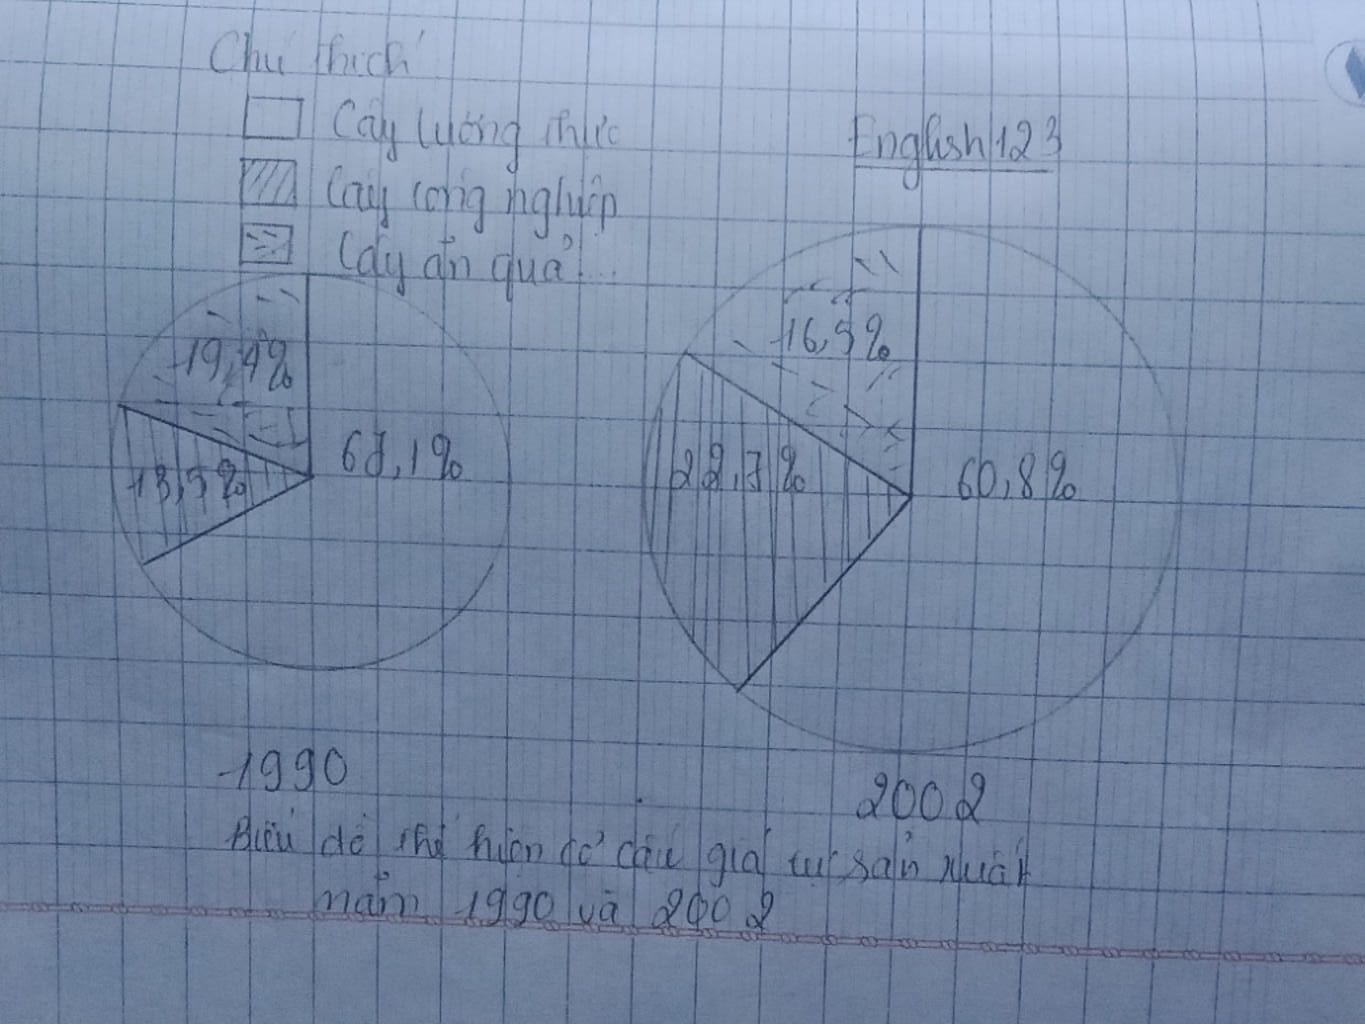 Chú thích
Cây lương thực
English 123
Cây công nghiệp
Cây ăn quả...
19,4%
16,5%
13,5%
67,1%
22,7%
60,8%
1990
2002
Biểu đồ thể hiện cơ cấu giá trị sản xuất
năm 1990 và 2002